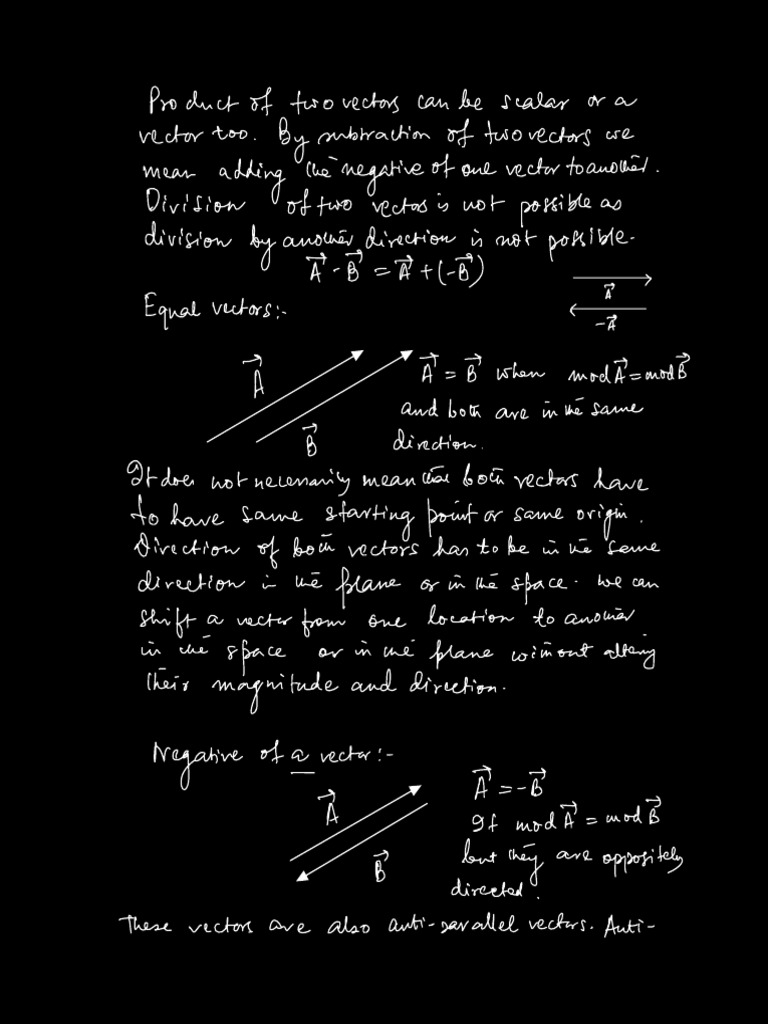 Product of two vectors can be scalar or a
vector too. By subtraction of two vectors we
mean adding the negative of one vector to another.
Division of two vectors is not possible as
division by another direction is not possible.
A⃗ - B⃗ = A⃗ + (-B⃗)
A⃗
-A⃗
Equal vectors:-
A⃗
B⃗
A⃗ = B⃗ when mod A⃗ = mod B⃗
and both are in the same
direction.
It does not necessarily mean that both vectors have
to have same starting point or same origin.
Direction of both vectors has to be in the same
direction in the plane or in the space. We can
shift a vector from one location to another
in the space or in the plane without altering
their magnitude and direction.
Negative of a vector:-
A⃗
B⃗
A⃗ = -B⃗
If mod A⃗ = mod B⃗
but they are oppositely
directed.
These vectors are also anti-parallel vectors. Anti-